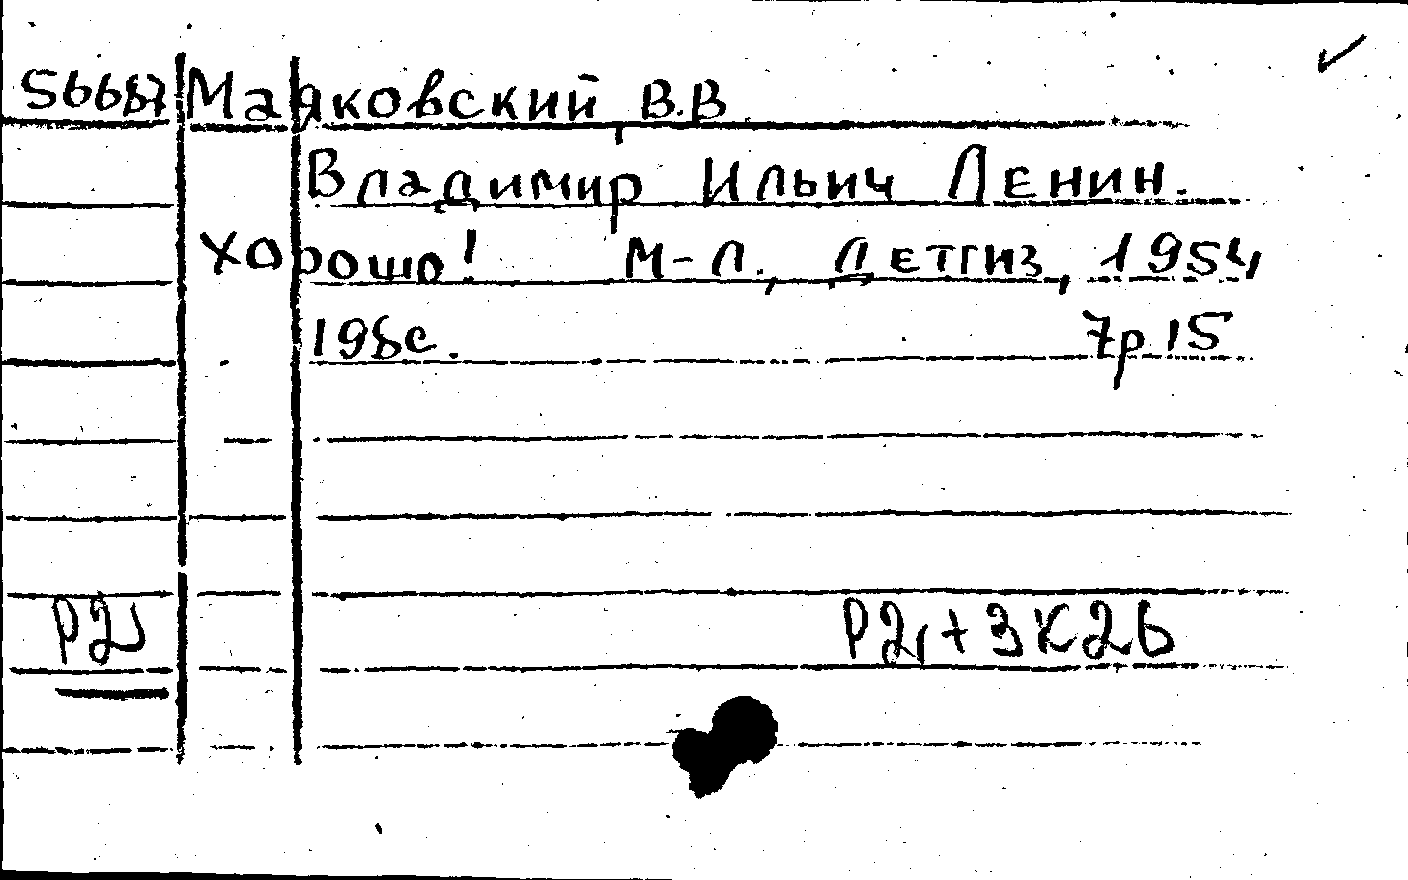 56687 Маяковский В.В
Владимир Ильич Ленин.
Хорошо! М-Л., Детгиз, 1954
198с. 7р 15
Р2 Р2 + 3К2Б